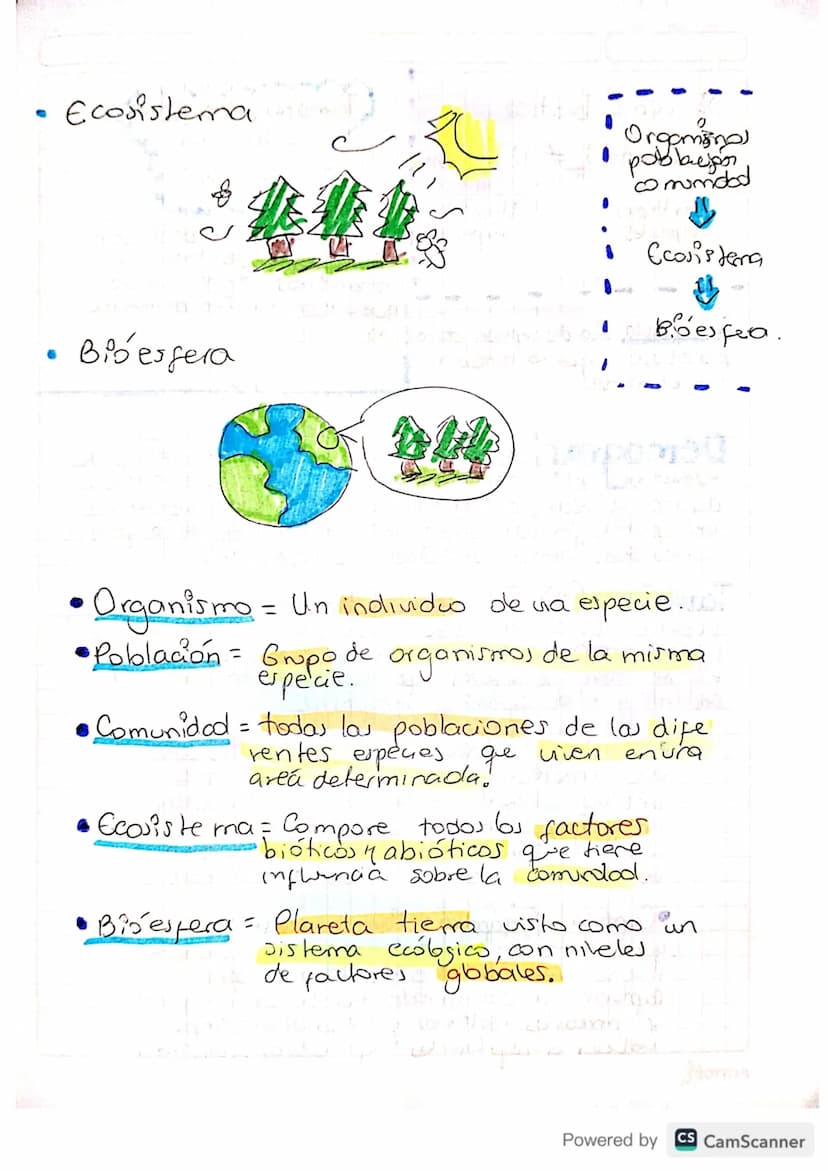 • Ecosistema
Organismos
población
comunidad
Ecosistema
Bióesfera.
• Bióesfera
• Organismo = Un individuo de una especie.
• Población = Grupo de organismos de la misma
especie.
• Comunidad = todas las poblaciones de las dife
rentes especies que viven en una
area determinada.
• Ecosistema = Compore todos los factores
bióticos y abióticos que tiene
influencia sobre la comunidad.
• Bióesfera = Planeta tierra visto como un
sistema ecólogico, con niveles
de factores globales.
Powered by CS CamScanner